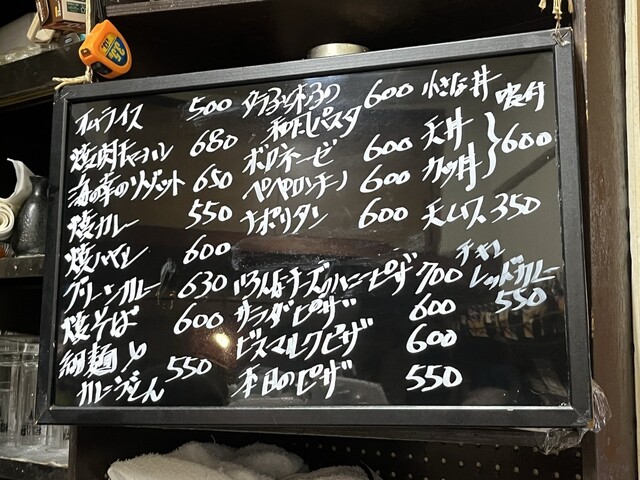 オムライス 500
焼肉チャーハン 680
海の幸のリゾット 650
焼カレー 550
焼ハヤシ 600
グリーンカレー 630
焼そば 600
細麺
カレーうどん 550
タラコときのこの
和風パスタ 600
ボロネーゼ 600
ペペロンチーノ 600
ナポリタン 600
いろんなチーズのハニーピザ 700
サラダピザ 600
ビスマルクピザ 600
本日のピザ 550
小さな丼 吸付
天丼
カツ丼
600
天ムス 350
チキン
レッドカレー
550